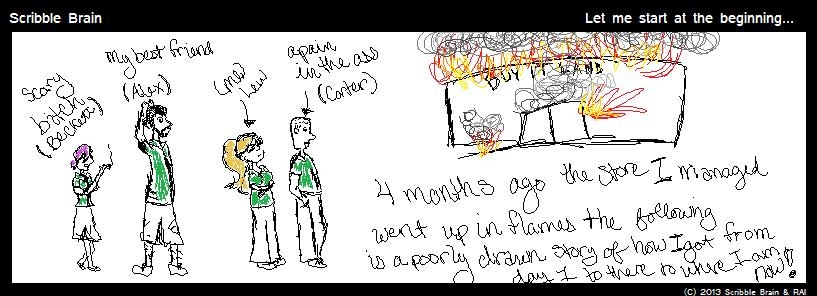 Scribble Brain
Let me start at the beginning...
scary
bitch
(Beckett)
my best friend
(Alex)
(me)
Lew
a pain
in the ass
(Carter)
BUY IT
4 months ago the store I managed
went up in flames the following
is a poorly drawn story of how I got from
day 1 to there to where I am
now!
(C) 2013 Scribble Brain & RAI